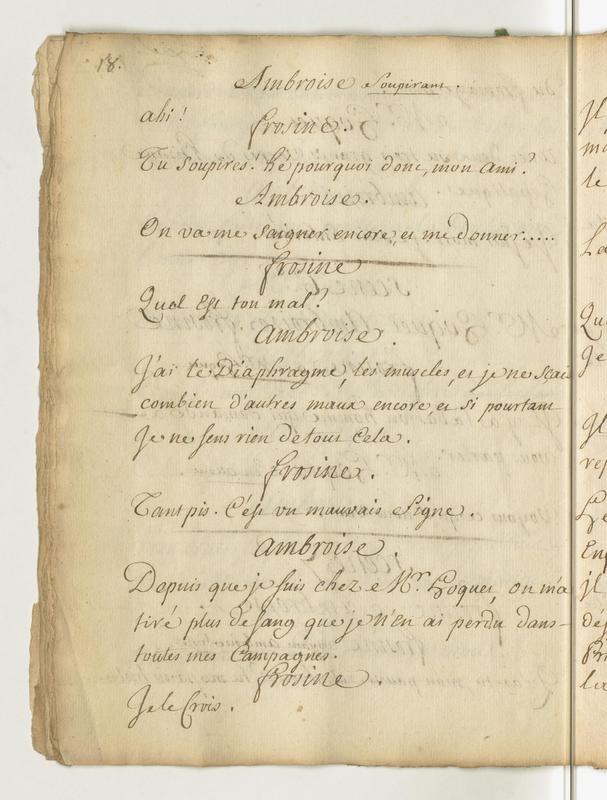 18.
Ambroise Soupirant.
ahi!
frosine.
Tu soupires. hé pourquoi donc, mon ami?
Ambroise.
On va me saigner encore, et me donner.....
frosine
Quel Est ton mal?
ambroise.
J'ai le Diaphragme, les muscles, et je ne sçai
combien d'autres maux encore, et si pourtant
Je ne sens rien de tout cela.
frosine.
Tant pis. C'est un mauvais Signe.
ambroise.
Depuis que je suis chez Mr. Loquet, on m'a
tiré plus de sang que je n'en ai perdu dans
toutes mes Campagnes.
frosine.
Je le Crois.